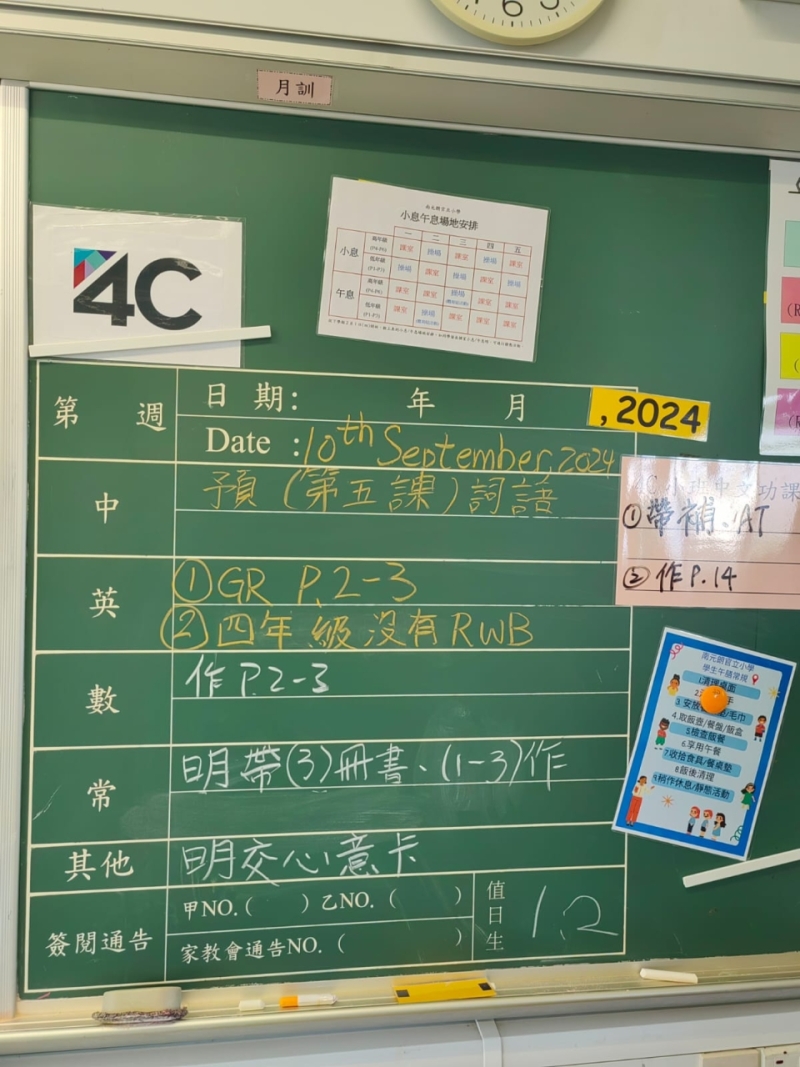 6
月訓
4C
南元朗官立小學
小息午息場地安排
一 二 三 四 五
小息
高年級 (P4-P6) 課室 操場 課室 操場 課室
低年級 (P1-P3) 操場 課室 操場 課室 操場
午息
高年級 (P4-P6) 課室 課室 操場 課室 課室
低年級 (P1-P3) 課室 操場 課室 課室 課室
第 週
日 期: 年 月
, 2024
Date : 10th September, 2024
中
預(第五課)詞語
4C小班中文功課
①帶補、AT
②作P.14
英
①GR P.2-3
②四年級沒有RWB
數
作P.2-3
常
明帶(3)冊書、(1-3)作
其他
明交心意卡
簽閱通告
甲NO.( ) 乙NO. ( )
家教會通告NO. ( )
值日生
1.2
南元朗官立小學
學生午膳常規
1.清理桌面
4.取飯壺/餐盤/飯盒
5.檢查飯餐
6.享用午餐
7.收拾食具/餐桌墊
8.飯後清理
9.稍作休息/靜態活動